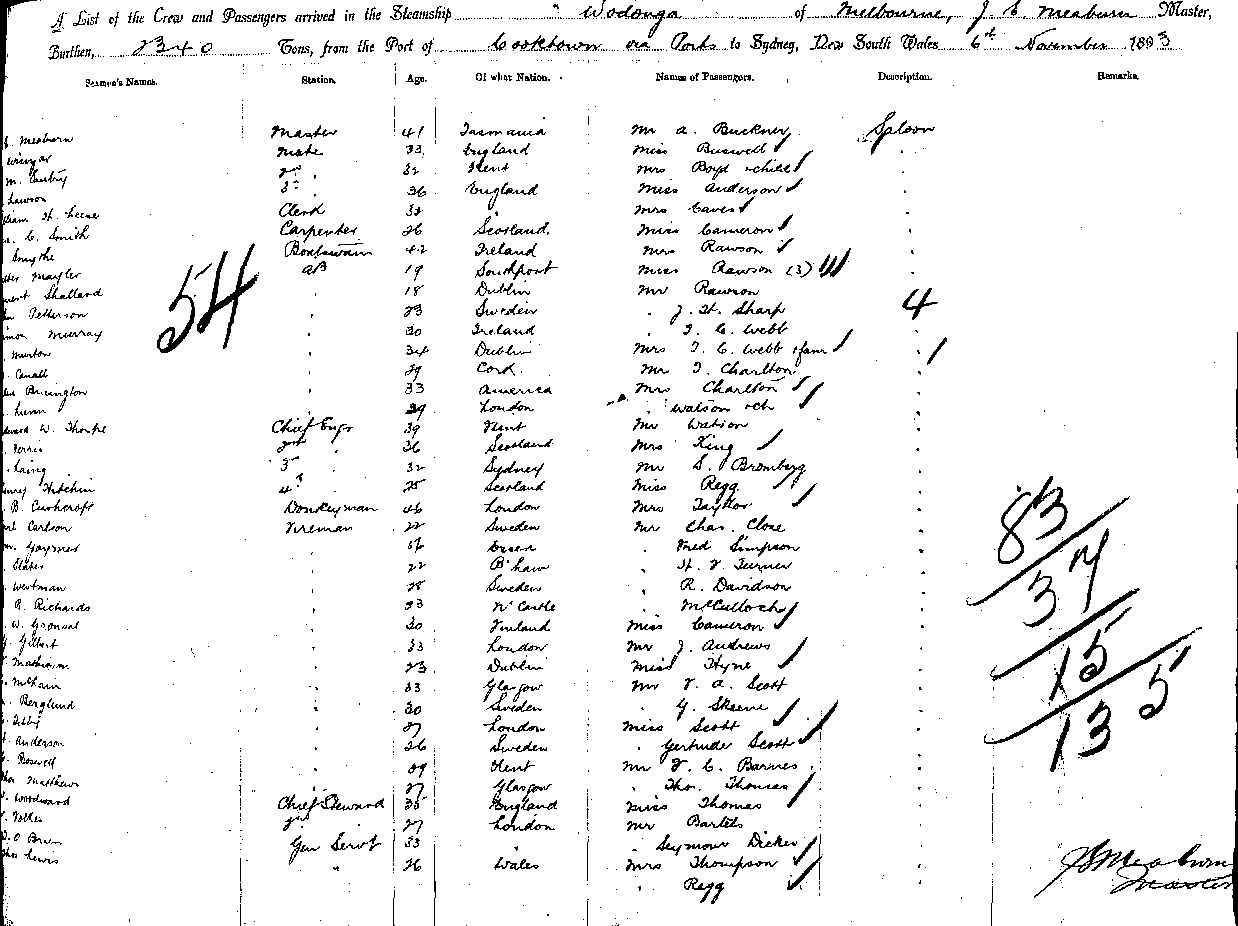 A List of the Crew and Passengers arrived in the Steamship " Wodonga of Melbourne, J. C. Meaburn Master,
Burthen, 2340 Tons, from the Port of Cooktown via Ports to Sydney, New South Wales 6th November 1893
Seamen's Names. Station. Age. Of what Nation. Names of Passengers. Description. Remarks.
Meaburn Master 41 Tasmania Mr A. Buckner Saloon
Mate 33 England Miss Buswell
2nd 32 Kent Mrs Boyd + child
Lawson 3rd 36 England Miss Anderson
H. Leese Clerk 32 Mrs Caves
C. Smith Carpenter 26 Scotland Miss Cameron
Smythe Boatswain 42 Ireland Mrs Rawson
Mayler AB 19 Southport Miss Rawson (3)
Shallard 18 Dublin Mr Rawson
54
Petterson 23 Sweden J. H. Sharp 4
Murray 30 Ireland T. C. Webb
Murton 34 Dublin Mrs T. C. Webb + fam
29 Cork Mr T. Charlton
Bennington 33 America Mrs Charlton
Lunn 29 London " Watson + ch
W. Thorpe Chief Engr 39 Kent Mr Watson
Ferris 2nd 36 Scotland Mrs King
Laing 3rd 32 Sydney Mr S. Bromberg
Hitchin 4th 25 Scotland Miss Regg
B. Cushcroft Donkeyman 46 London Mrs Taylor
Carlson Fireman 22 Sweden Mr Chas. Close
Gaymer Fred Simpson
83
Slates 22 B'ham H. V. Turner
Westman 28 Sweden R. Davidson
37
R. Richards 23 N'Castle McCulloch
W. Gronsal 30 Finland Miss Cameron
Gilbert 33 London Mr J. Andrews
15
Mathieson 23 Dublin Miss Hyne
McBain 33 Glasgow Mr V. A. Scott
Berglund 30 Sweden G. Skeene
135
27 London Miss Scott
Anderson 26 Sweden " Gertrude Scott
Roswell 29 Kent Mr V. C. Barnes
Matthews 27 Glasgow Tho. Thomas
Woodward Chief Steward 35 England Miss Thomas
2nd 27 London Mr Bartels
O'Brien Gen Servt 33 Seymour Dicken
Lewis " 26 Wales Mrs Thompson
" Regg
J C Meaburn
Master